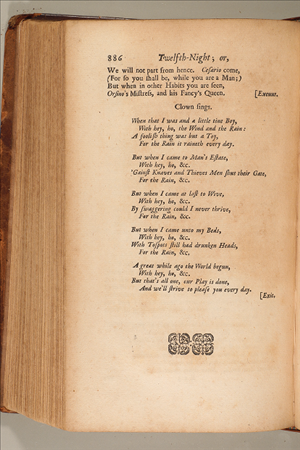 886 Twelfth-Night; or,
We will not part from hence. Cesario come,
(For so you shall be, while you are a Man;)
But when in other Habits you are seen,
Orsino's Mistress, and his Fancy's Queen. [Exeunt.
Clown sings.
When that I was and a little tine Boy,
With hey, ho, the Wind and the Rain:
A foolish thing was but a Toy,
For the Rain it raineth every day.
But when I came to Man's Estate,
With hey, ho, &c.
'Gainst Knaves and Thieves Men shut their Gate,
For the Rain, &c.
But when I came at last to Wive,
With hey, ho, &c.
By swaggering could I never thrive,
For the Rain, &c.
But when I came unto my Beds,
With hey, ho, &c.
With Tospots still had drunken Heads,
For the Rain, &c.
A great while ago the World begun,
With hey, ho, &c.
But that's all one, our Play is done,
And we'll strive to please you every day.
[Exit.